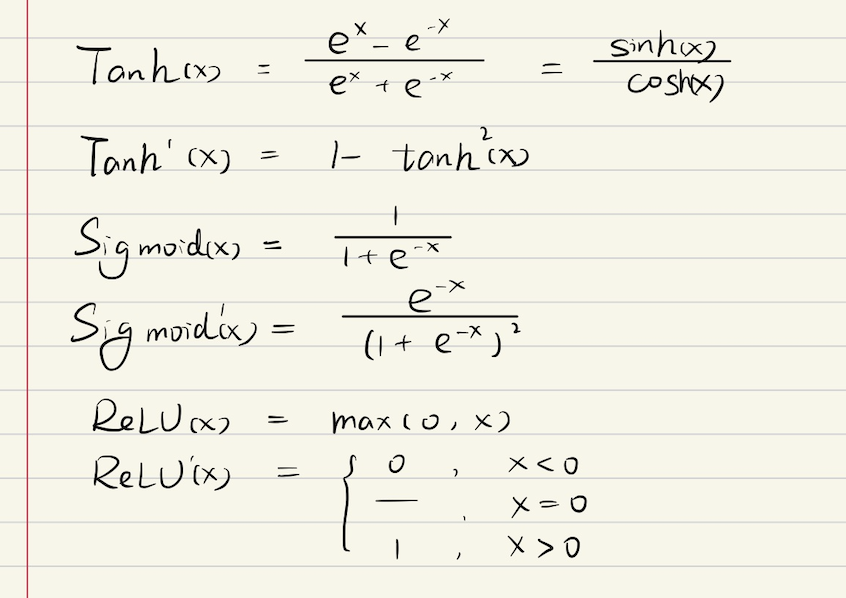 Tanh(x) = (e^x - e^-x) / (e^x + e^-x) = sinh(x) / cosh(x)
Tanh'(x) = 1 - tanh²(x)
Sigmoid(x) = 1 / (1 + e^-x)
Sigmoid'(x) = e^-x / (1 + e^-x)²
ReLU(x) = max(0, x)
ReLU'(x) = { 0 , x < 0
— , x = 0
1 , x > 0